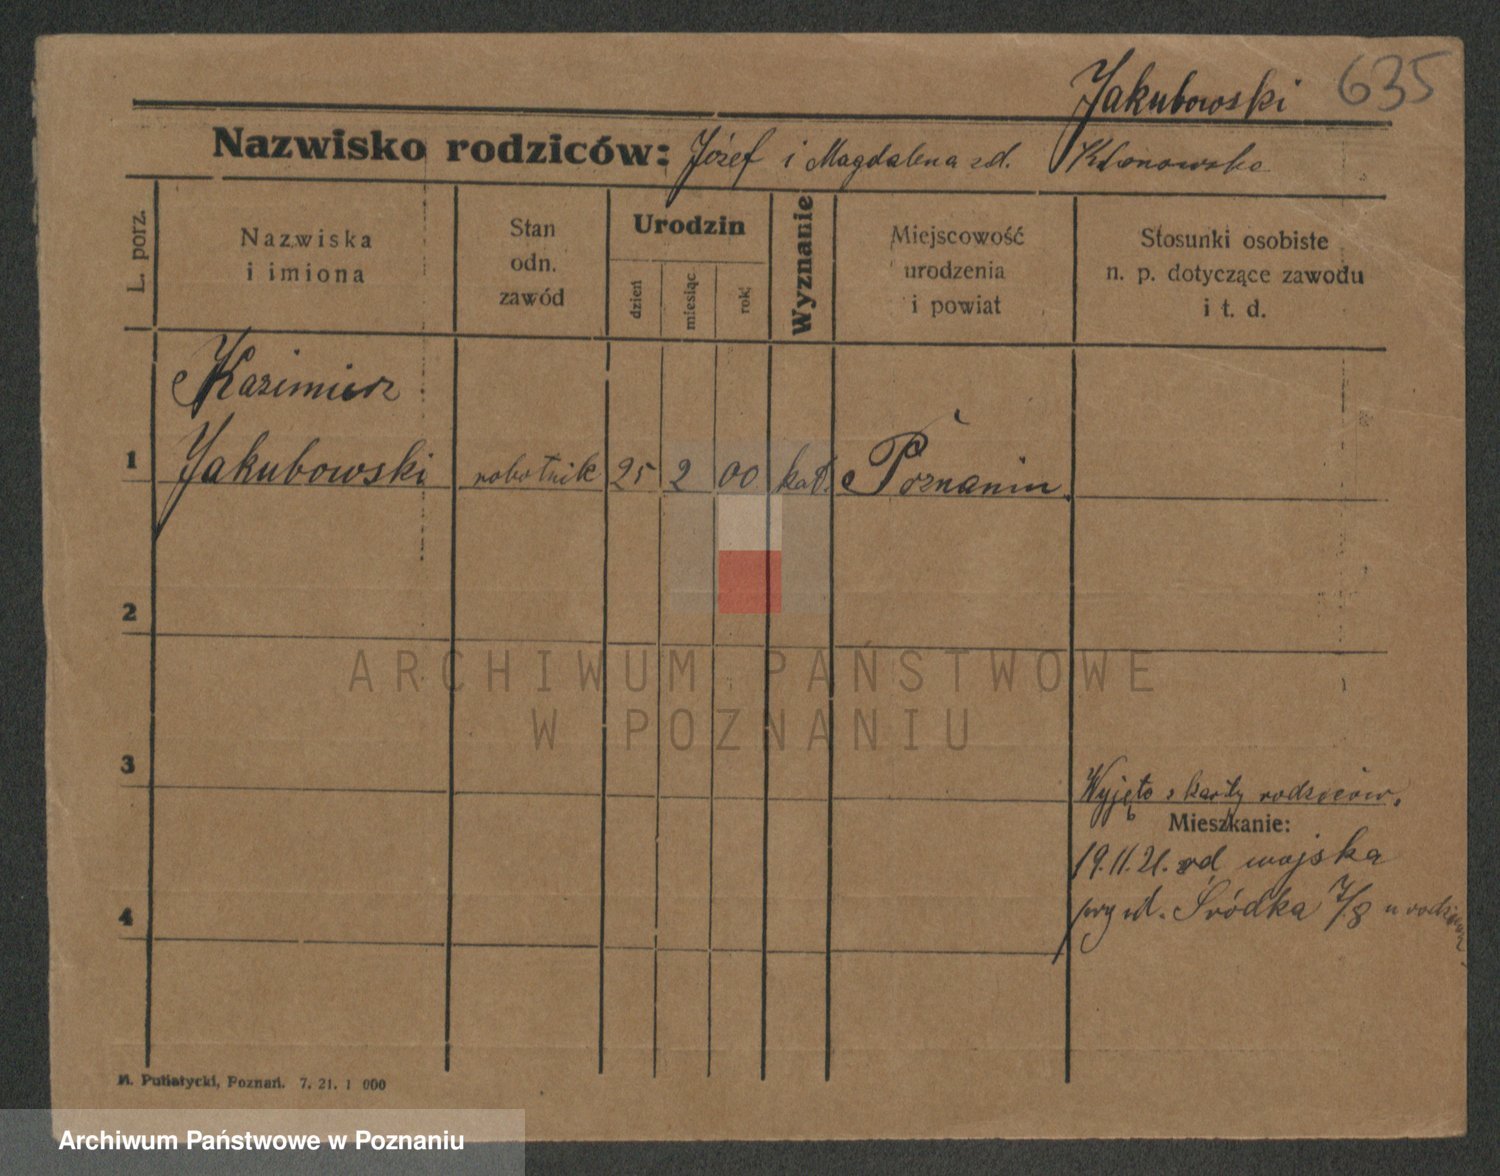 Jakubowski 635
Nazwisko rodziców: Józef i Magdalena zd. Klonowska
L. porz.
Nazwiska
i imiona
Stan
odn.
zawód
Urodzin
dzień
miesiąc
rok
Wyznanie
Miejscowość
urodzenia
i powiat
Stosunki osobiste
n. p. dotyczące zawodu
i t. d.
Kazimierz
1 Jakubowski robotnik 25 2 00 kat. Poznaniu
2
ARCHIWUM PAŃSTWOWE
W POZNANIU
3
Wyjęto z karty rodziców.
Mieszkanie:
19.11.21. od wojska
4
przy ul. Śródka 7/8 u rodziców
M. Putiatycki, Poznań. 7. 21. 1 000
Archiwum Państwowe w Poznaniu